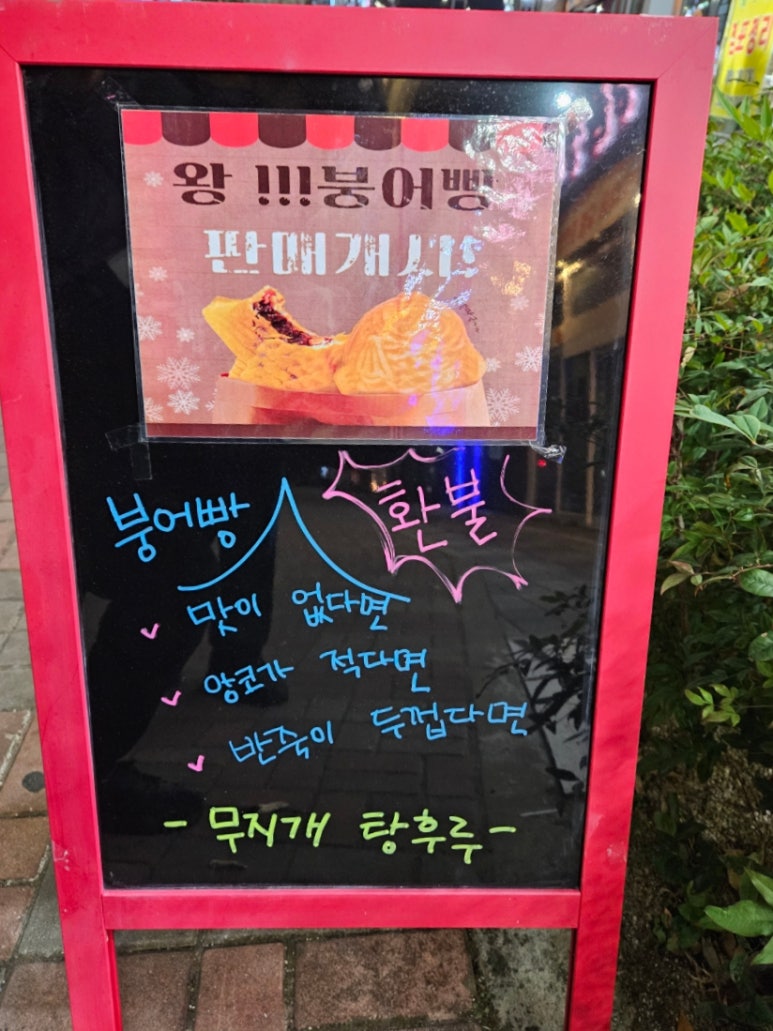 왕 !!!붕어빵
판매개시!!
붕어빵
환불
맛이 없다면
앙코가 적다면
반죽이 두껍다면
- 무지개 탕후루 -